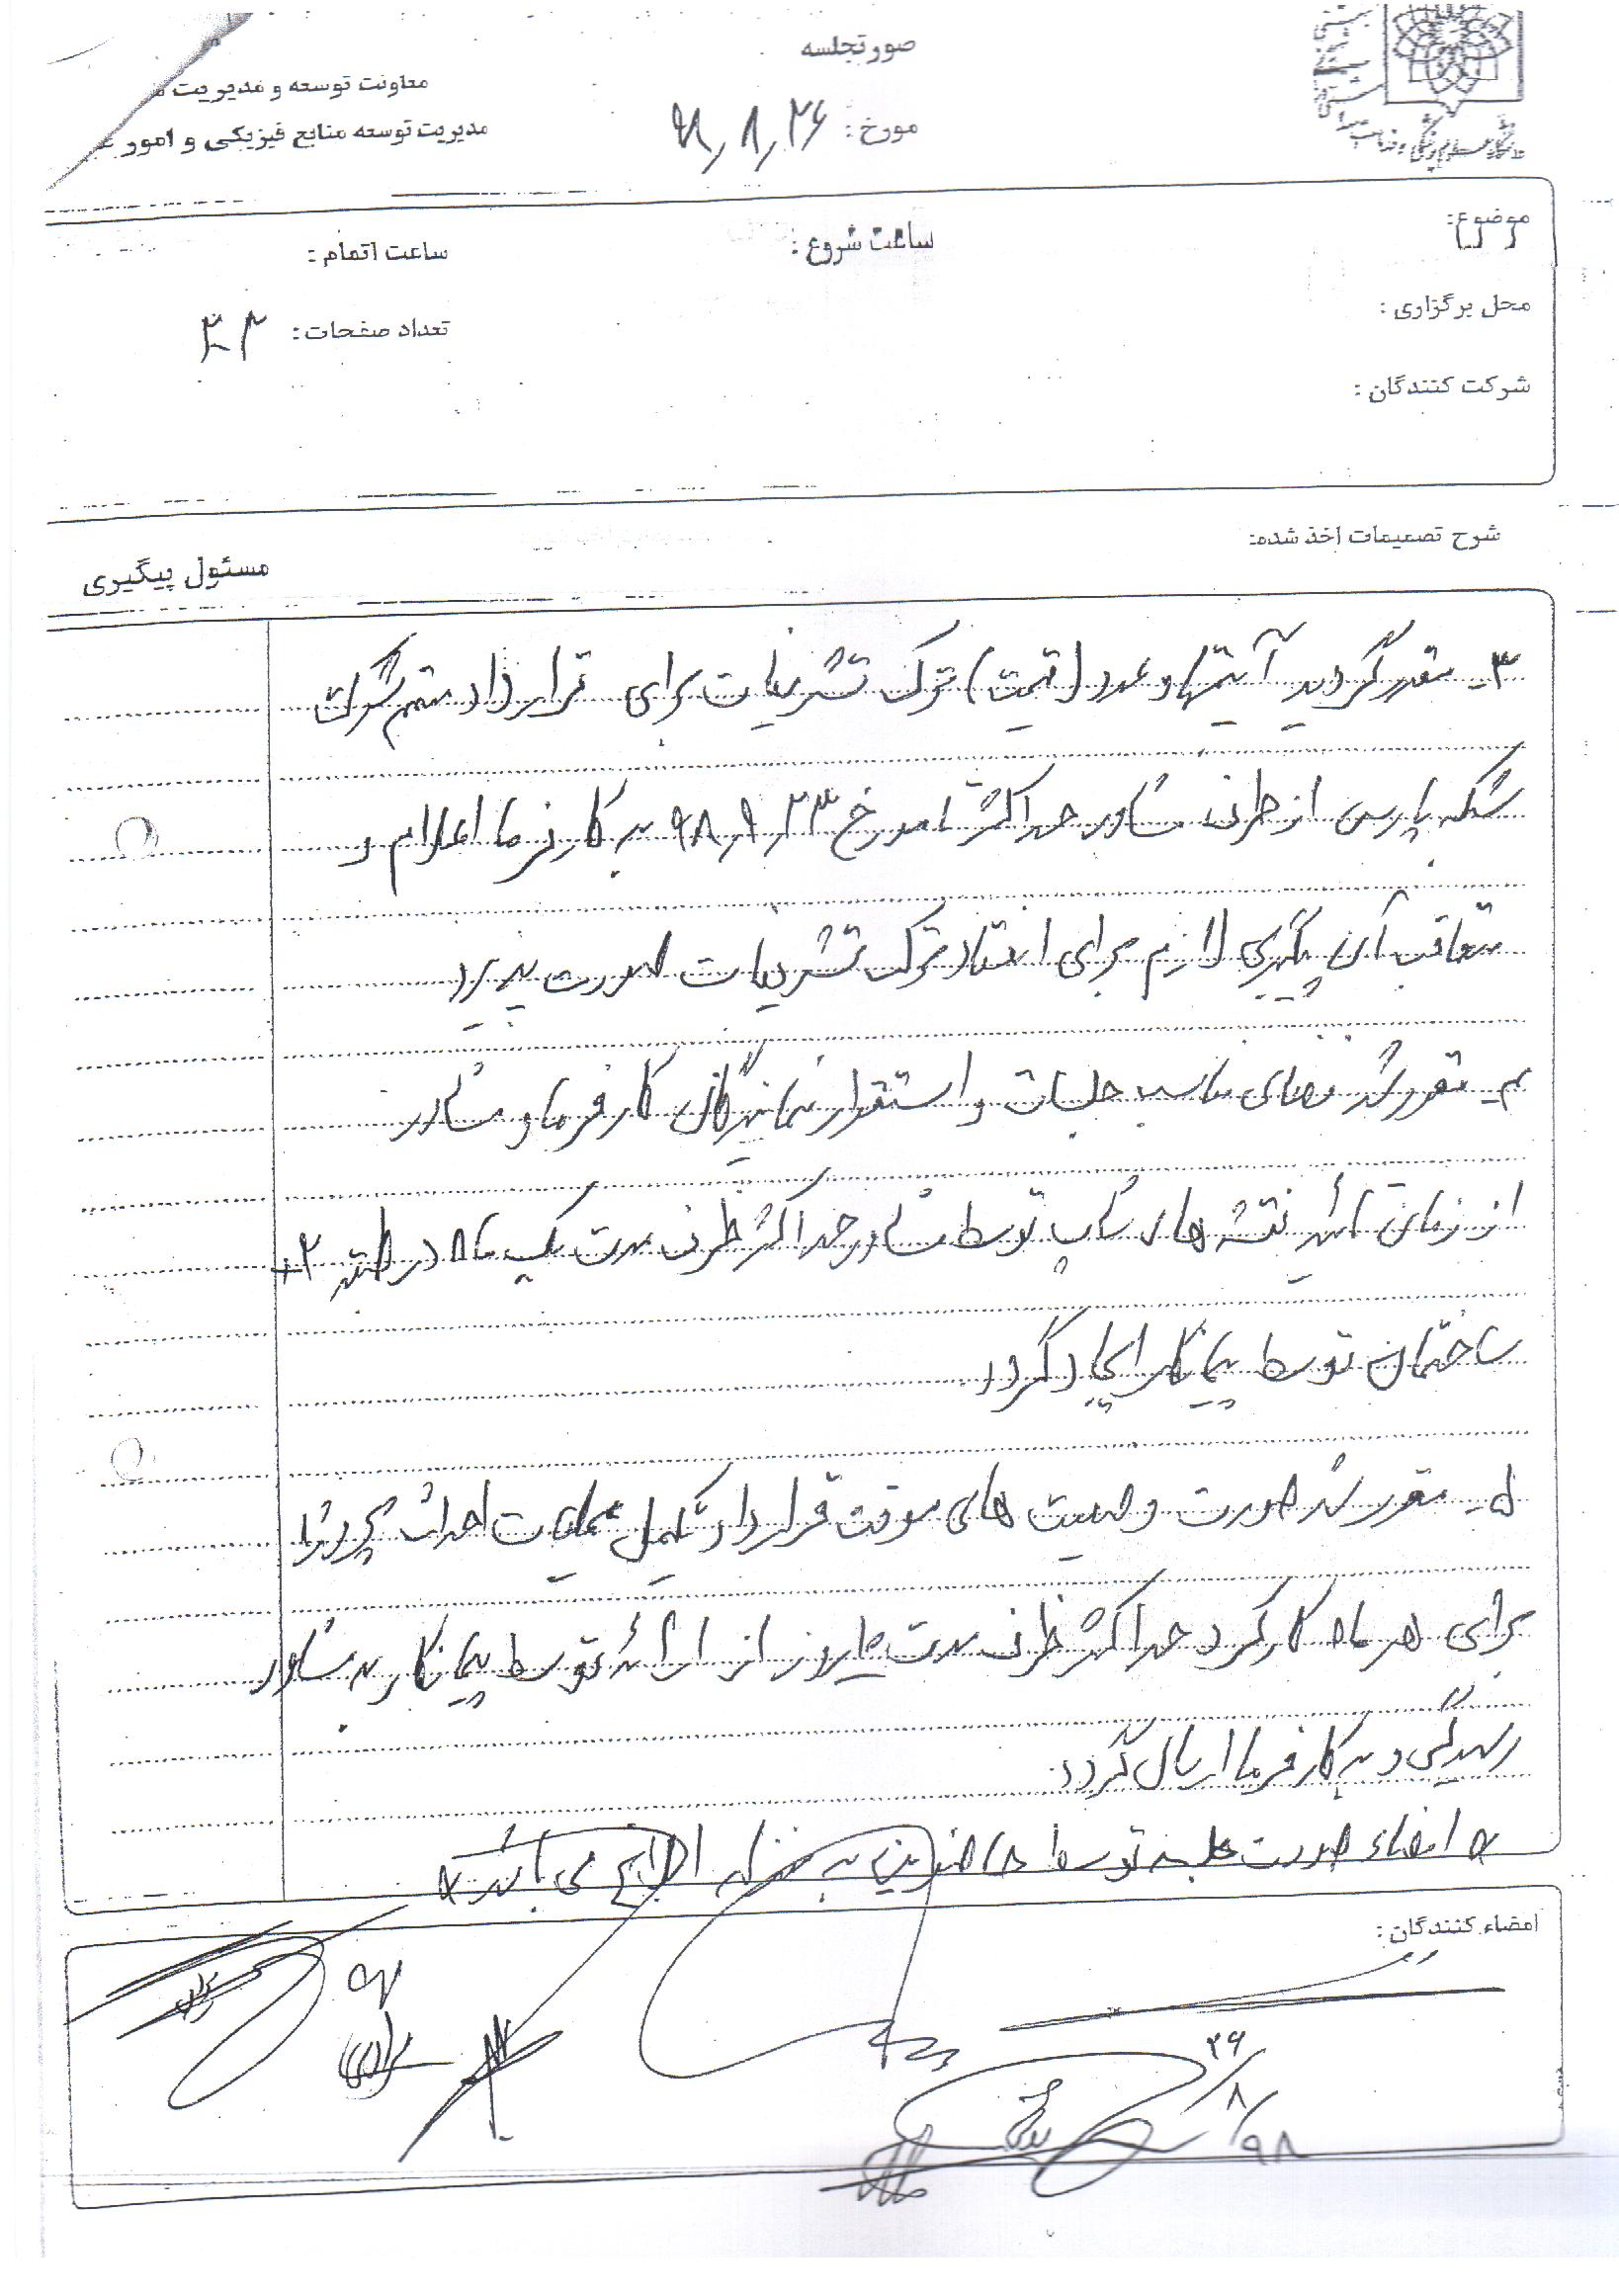 صورتجلسه
معاونت توسعه و مدیریت
مدیریت توسعه منابع فیزیکی و امور
مورخ: ۹۸٫۸٫۲۶
موضوع:
ساعت شروع:
ساعت اتمام:
محل برگزاری:
تعداد صفحات:
شرکت کنندگان:
شرح تصمیمات اخذ شده:
مسئول پیگیری
۳- مقرر گردید آیتمها و عدد (قیمت) ترک تشریفات برای قرارداد متمم شرکت
شبکه پارس از طرف مشاور حداکثر تا مورخ ۹۸٫۹٫۲۳ به کارفرما اعلام و
متعاقب آن پیگیری لازم برای انعقاد ترک تشریفات صورت پذیرد
۴- مقرر شد فضای مناسب جلسات و استقرار نمایندگان کارفرما و مشاور
از زمان تأئید نقشه های شاپ توسط مشاور حداکثر ظرف مدت یک ماه در طبقه
ساختمان توسط پیمانکار ایجاد گردد
۵- مقرر شد صورت وضعیت های موقت قرارداد تکمیل عملیات احداث پروژه
برای هر ماه کارکرد حداکثر ظرف مدت روز از ارائه توسط پیمانکار به مشاور
رسیدگی و به کارفرما ارسال گردد.
* امضاء صورت جلسه توسط حاضرین به منزله ابلاغ می باشد *
امضاء کنندگان:
۲۶/۸/۹۸